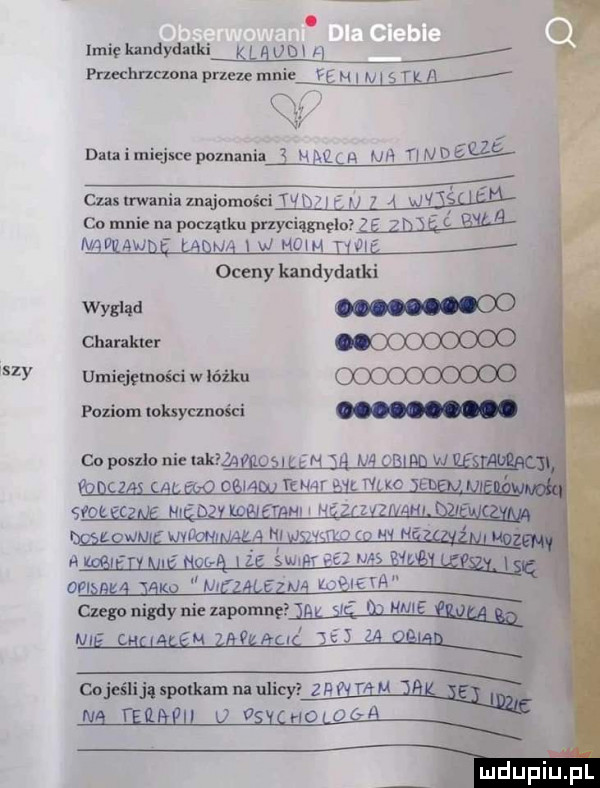 Obserwowani Dla Ciebie
Imię kandydatki KLAUDIA
Przechrzczona przeze mnie FEMINISTKA
Data i miejsce poznania 3 MARCA NA TINDERZE
Czas trwania znajomości TYDZIEŃ Z 1 WYJŚCIEM
Co mnie na początku przyciągnęło? ZE ZDJĘĆ BYŁA
NAPRAWDĘ ŁADNA I W MOIM TYPIE
Oceny kandydatki
Wygląd
Charakter
szy
Umiejętności w łóżku
Poziom toksyczności
Co poszło nie tak? ZAPROSIŁEM JĄ NA OBIAD W RESTAURACJI,
PODCZAS CAŁEGO OBIADU TEMAT BYŁ TYLKO JEDEN, NIERÓWNOŚCI
SPOŁECZNE MIĘDZY KOBIETAMI I MĘŻCZYZNAMI. DZIEWCZYNA
DOSŁOWNIE WYPOMINAŁA MI WSZYSTKO CO MY MĘŻCZYŹNI MOŻEMY
A KOBIETY NIE MOGĄ I ŻE ŚWIAT BEZ NAS BYŁBY LEPSZY. I SIĘ
OPISAŁA JAKO "NIEZALEŻNA KOBIETA"
Czego nigdy nie zapomnę? JAK SIĘ DO MNIE PRUŁA BO
NIE CHCIAŁEM ZAPŁACIĆ JEJ ZA OBIAD
Co jeśli ją spotkam na ulicy? ZAPYTAM JAK JEJ IDZIE
NA TERAPII U PSYCHOLOGA
wdupiu.pl